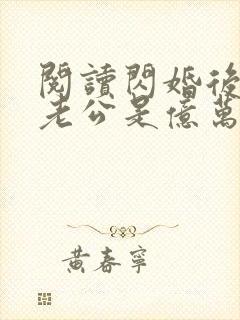 閱讀閃婚後
老公是億萬
黃春寧